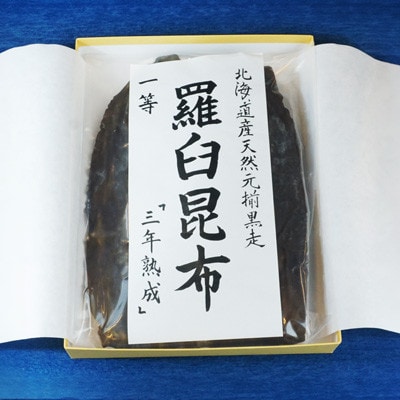 北海道産天然元揃黒走
羅臼昆布
一等
「三年熟成」